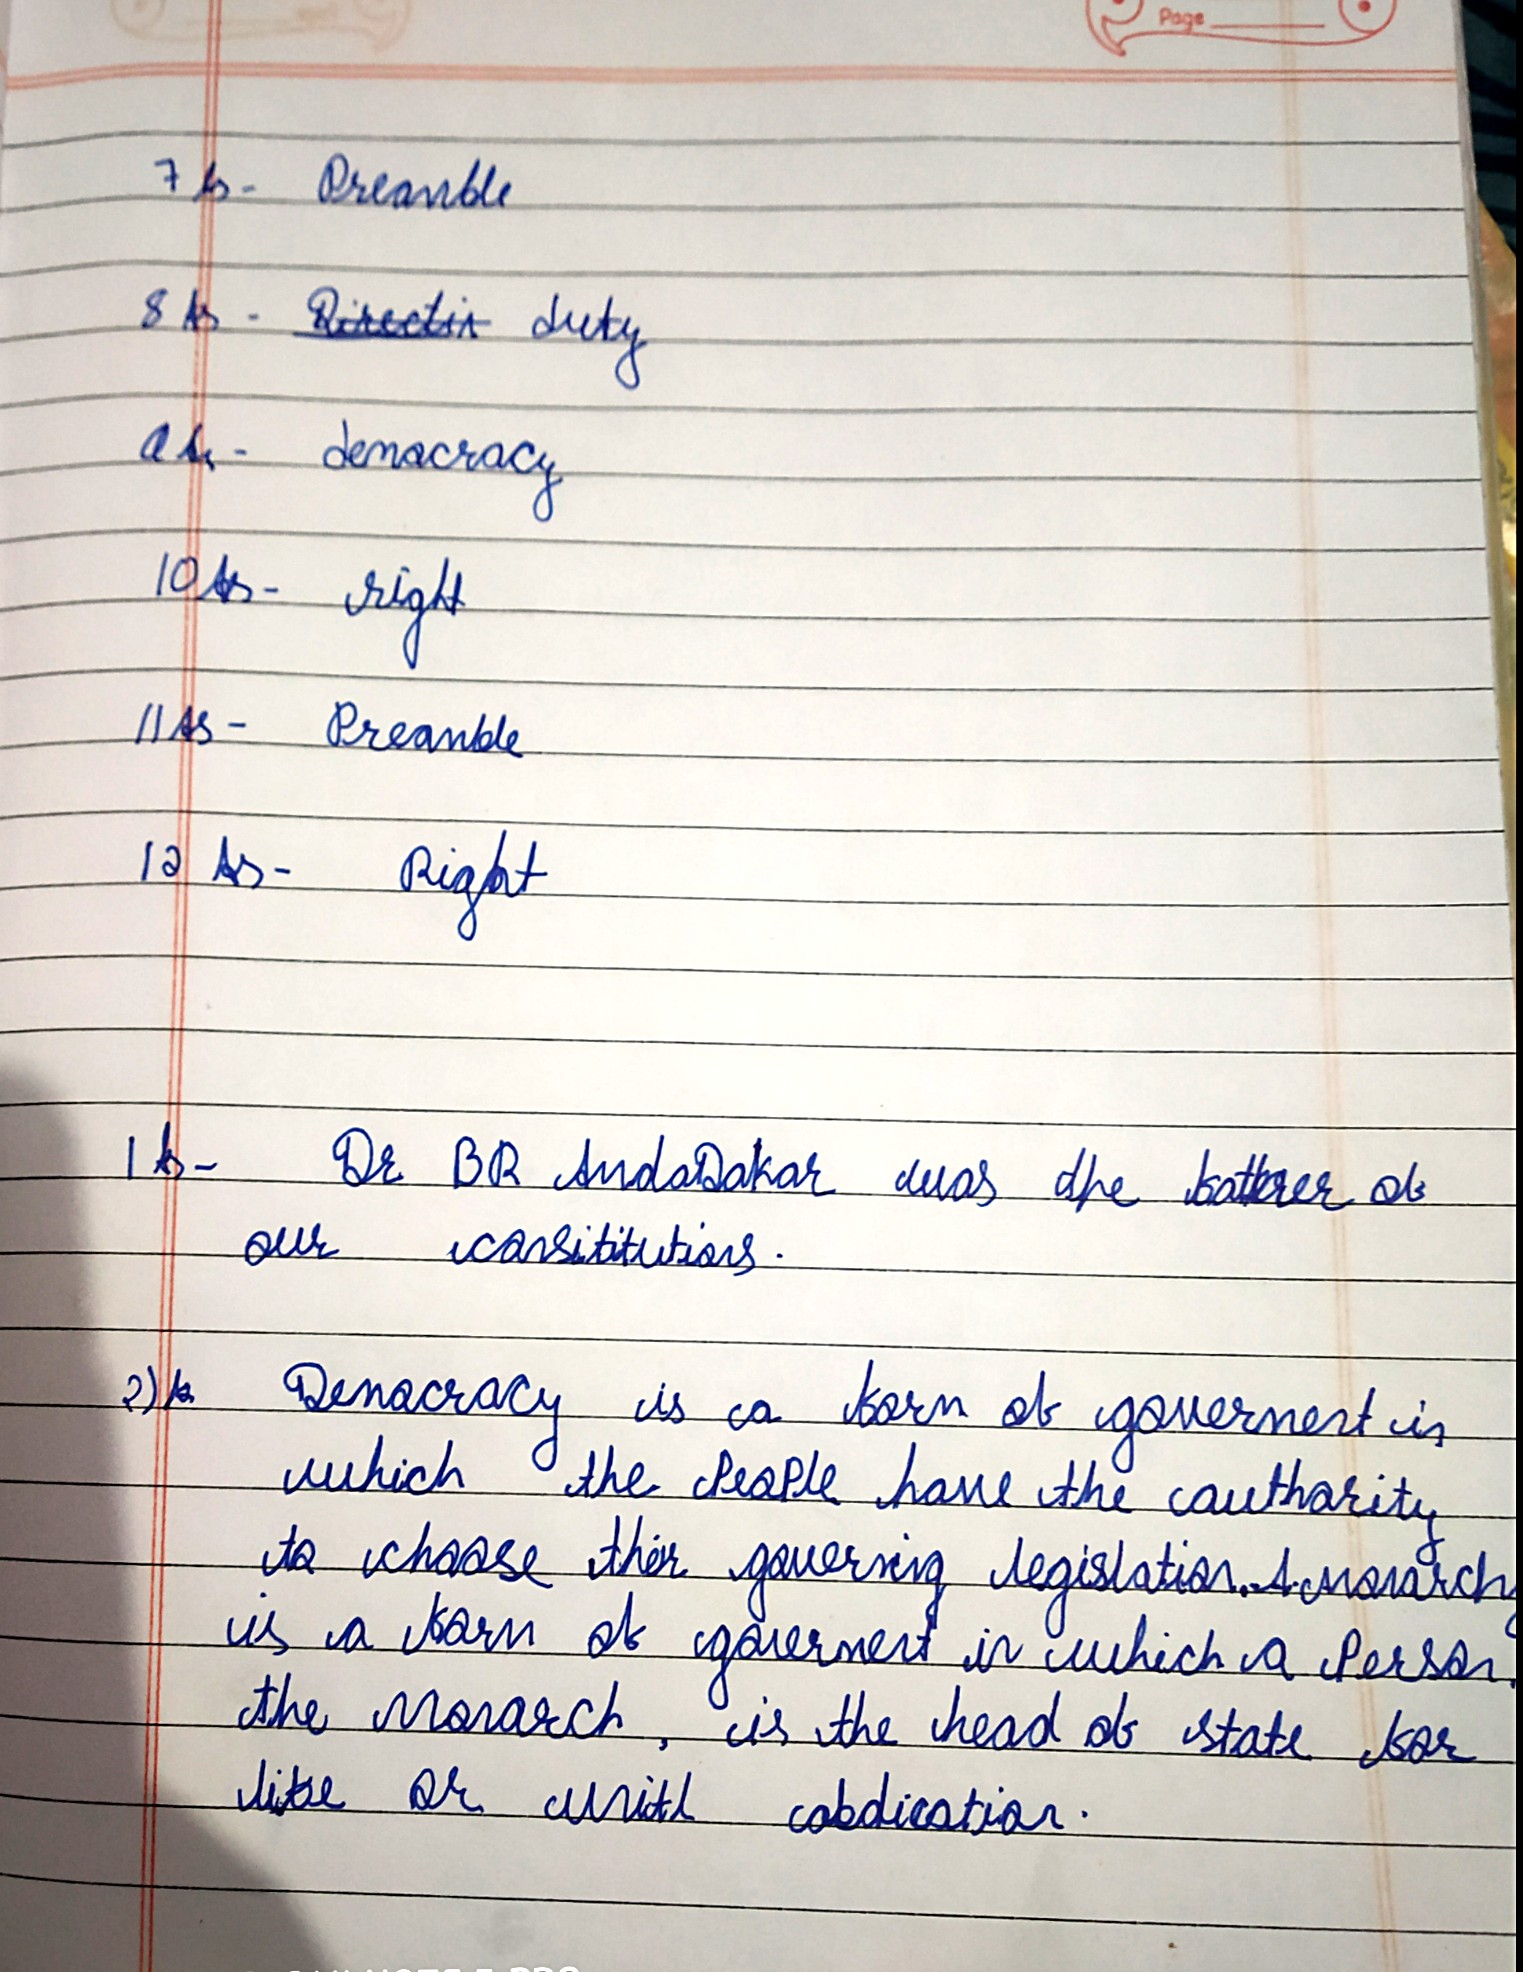 Page
7 As- Preamble
8 As - Directin duty
9 As- democracy
10 As- right
11 As- Preamble
12 As- Right
1 As- Dr BR AmdaDakar was the father of
our consititutions.
2) As Democracy is a form of government in
which the people have the authority
to choose thier governing legislation. A monarchy
is a form of government in which a Person,
the Monarch, is the head of state for
life or until abdication.